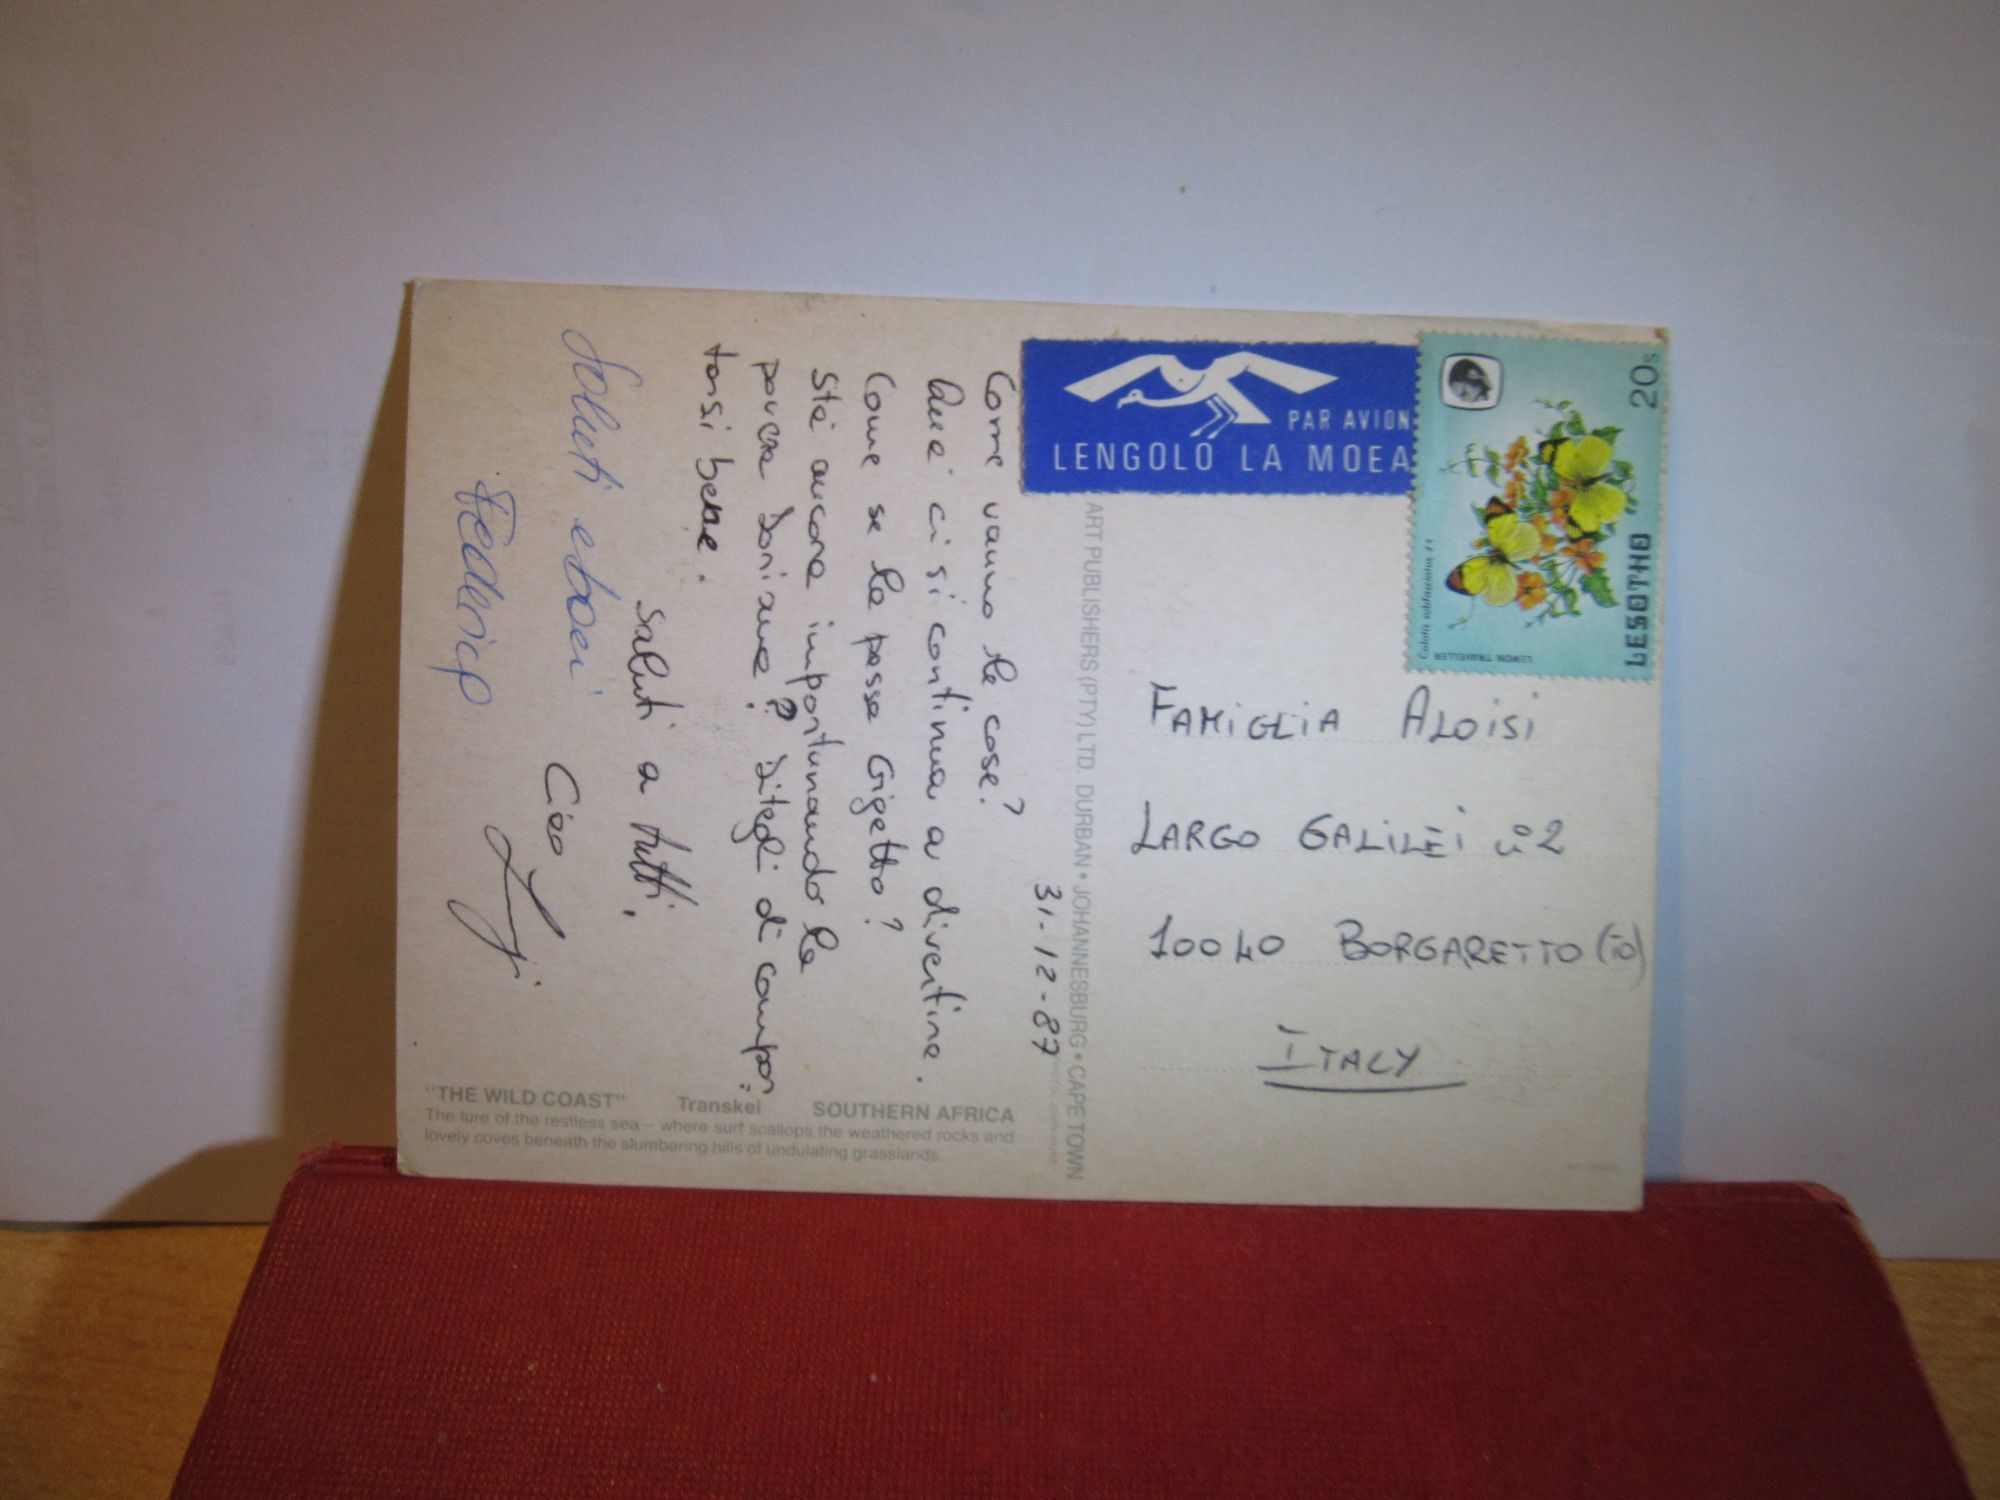 31-12-87
Come vanno le cose?
Quà ci si continua a divertire.
Come se la passa Gigetto?
Stà ancora importunando la
povera Doriana? Ditegli di compor=
tarsi bene.
Saluti a tutti.
Ciao
Saluti e baci
Federico
"THE WILD COAST" Transkei SOUTHERN AFRICA
The lure of the restless sea – where surf scallops the weathered rocks and
lovely coves beneath the slumbering hills of undulating grasslands.
ART PUBLISHERS (PTY) LTD. DURBAN • JOHANNESBURG • CAPE TOWN
PAR AVION
LENGOLO LA MOEA
20s
LESOTHO
LEMON TRAVELLER
FAMIGLIA ALOISI
LARGO GALILEI n°2
10040 BORGARETTO (TO)
ITALY